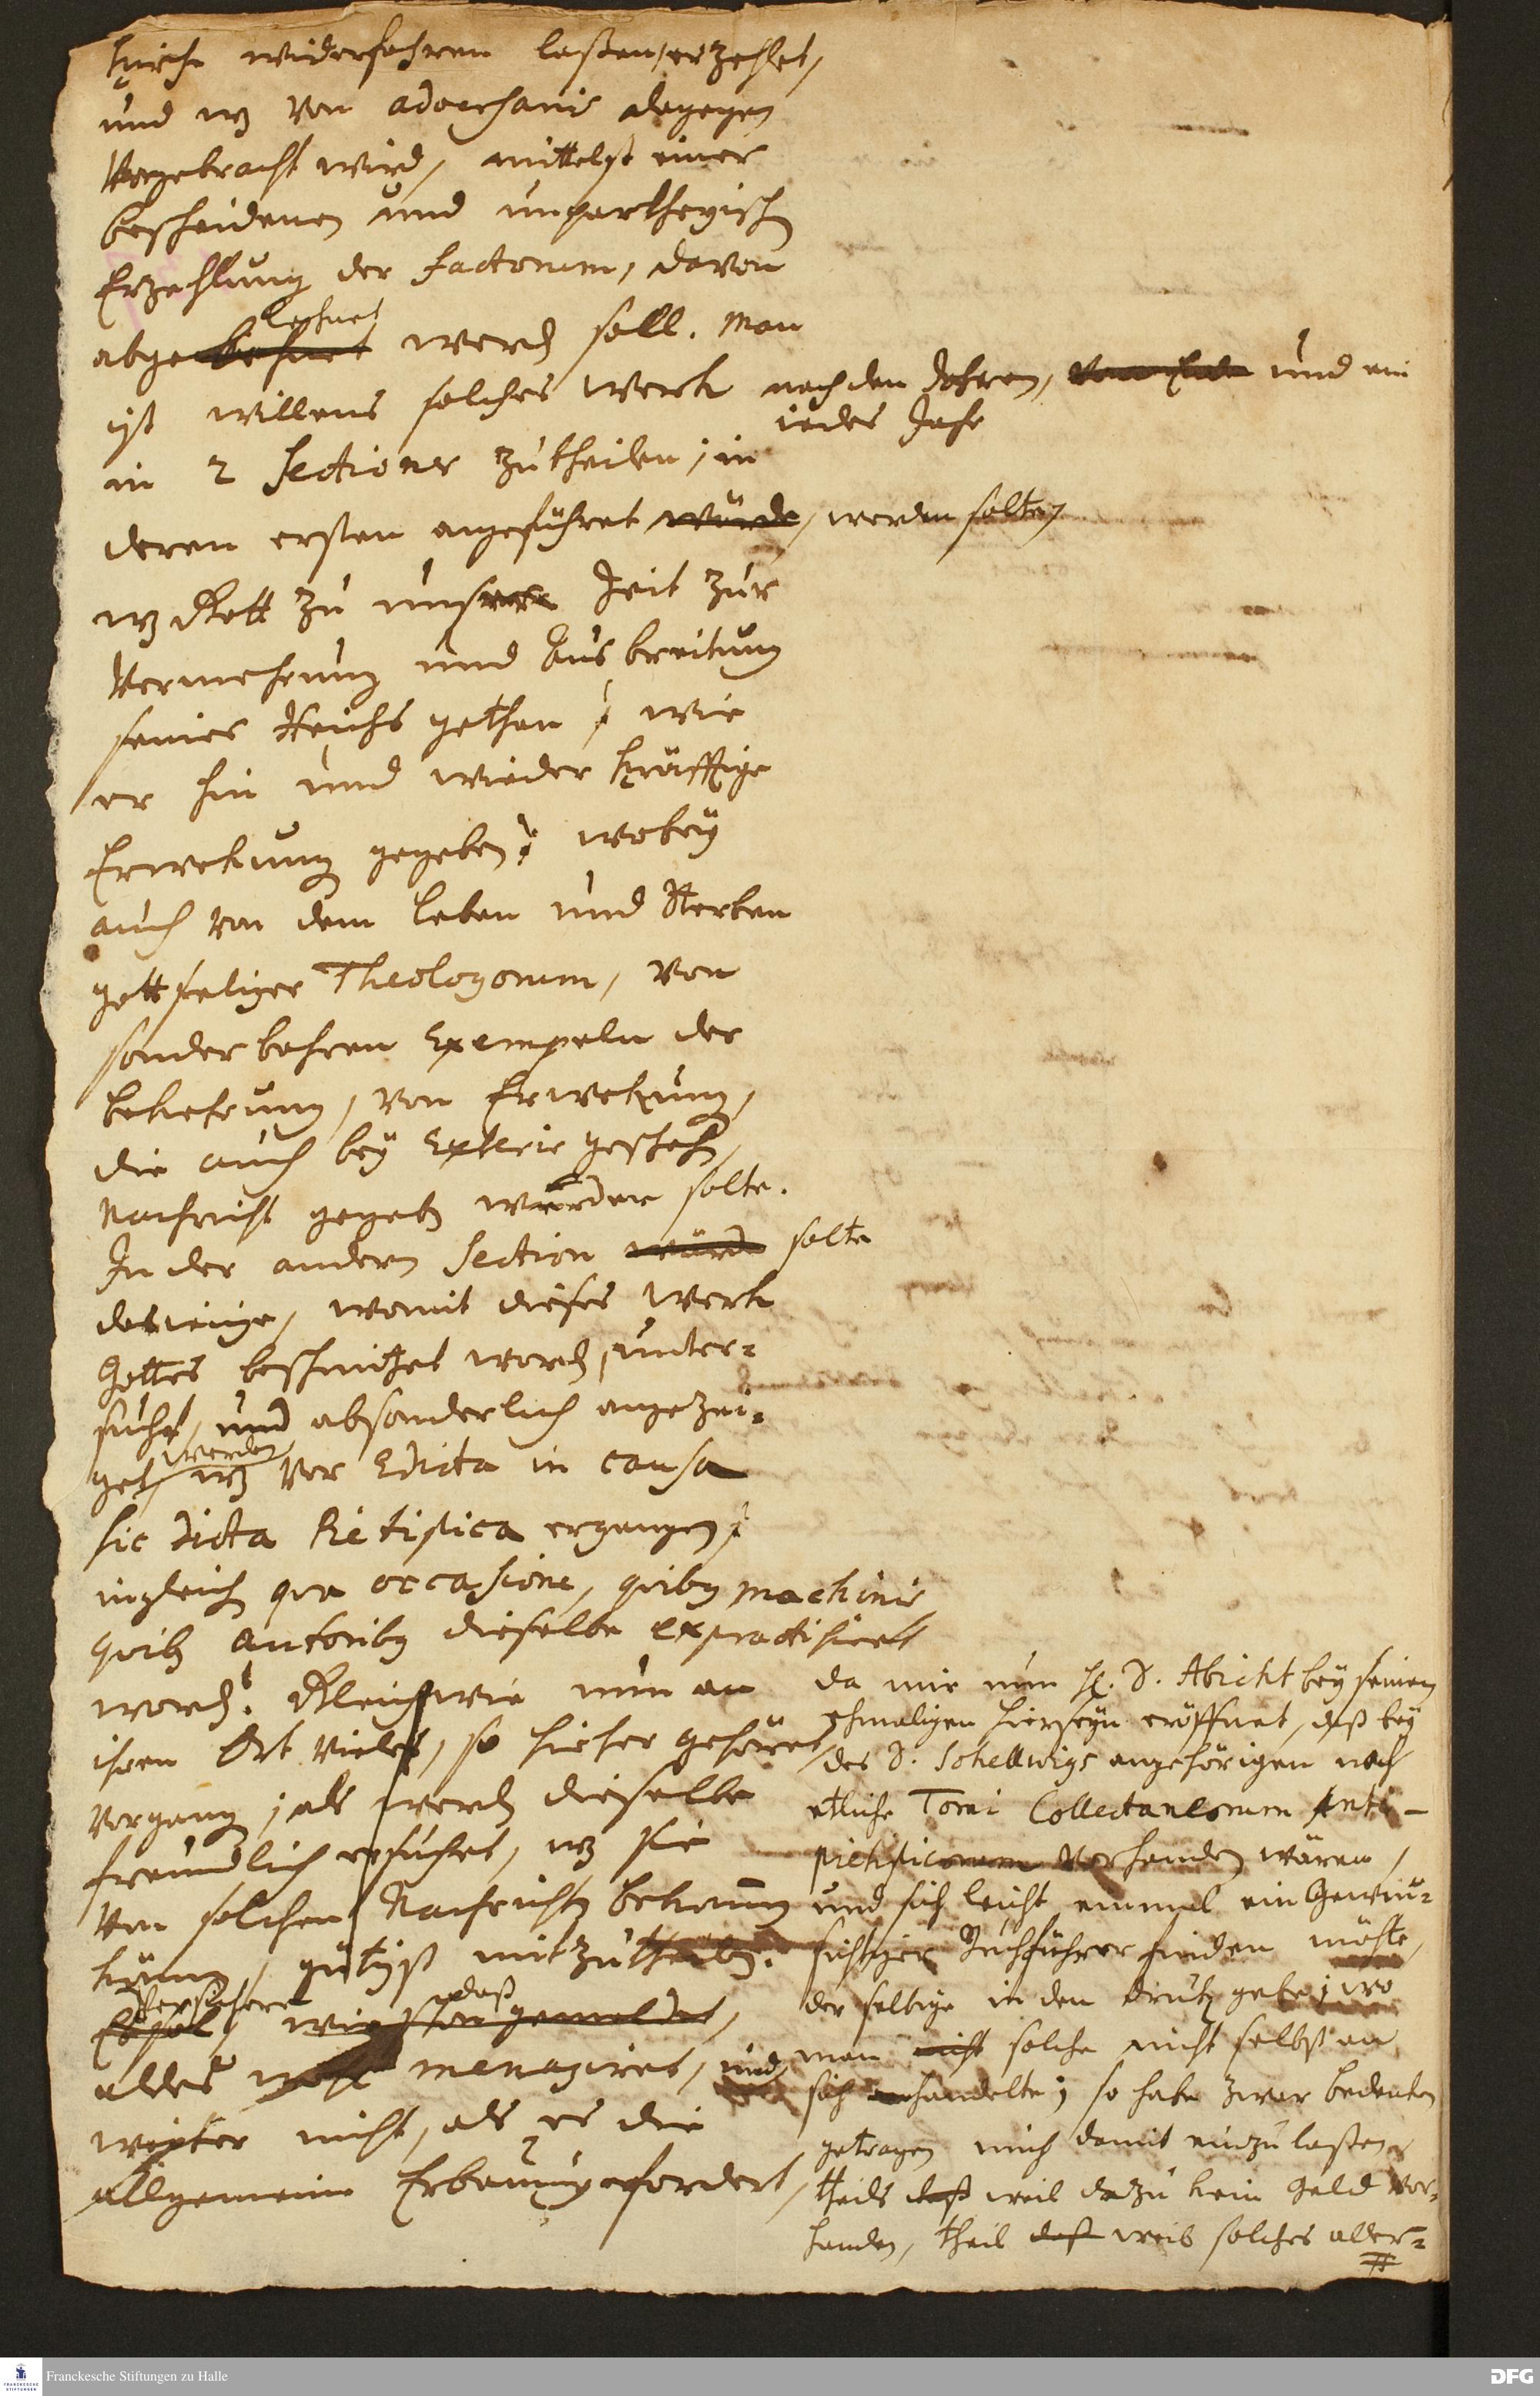 Kirche widerfahren laßen, erzehlet,
und wz von adversariis dagegen
vorgebracht wird, mittelst einer
bescheidenen und unpartheyisch
Erzehlung der factorum, davon
lehnet
abge werd soll. Man
ist willens solches Werk nach den Jahren, und ein
iedes Jahr
in 2 Sectiones zutheilen; in
deren ersten angeführet würde, werden solte,
wz Gott zu unsere Zeit zur
Vermehrung und Ausbreitung
seines Reichs gethan; wie
er hin und wieder kräfftige
Erwekung gegeben; wobey
auch von dem Leben und Sterben
gottseliger Theologorum, von
sonderbahren Exempeln der
Bekehrung, von Erwekung,
die auch bey Exteris gescheh,
Nachricht gegeb werden solte.
In der andern Section würde solte
dasienige, womit dieses Werk
Gottes beschmitzet word, unter-
sucht, und absonderlich angezei-
werden
get, wz vor Edicta in causa
sic dicta Pietistica ergangen;
ingleich qva occasione, qvibus machinis,
qvib autoribus dieselbe expracticiret
word. Gleichwie nun an
ihrem Ort vieles, so hieher gehöret,
vorgang; als werd dieselbe
freundlich ersuchet, wz sie
von solchen Nachricht bekomm
könn, gütigst mitzutheil.
versichere daß
Es soll, wie schon gemeldet,
alles menagiret, und
weiter nicht, als es die
allgemeine Erbauung erfordert,
da mir nun H. D. Abicht bey seinem
ehmaligen Hierseyn eröffnet, daß bey
des D. Schellwigs angehörigen noch
etliche Tomi Collectaneorum Anti-
pietisticorum vorhanden wären,
und sich leicht einmal ein Gewin-
süchtiger Buchführer finden möchte,
der selbige in den Druck gebe; wo
man nicht solche nicht selbst an
sich handelte; so habe zwar bedenken
getragen mich damit einzulaßen,
theils daß weil dazu kein Geld vor-
handen, theil daß weil solches aller-
Franckesche Stiftungen zu Halle
DFG